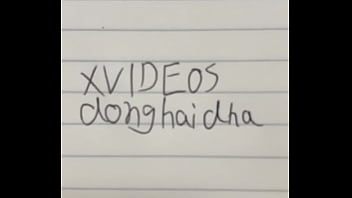 XVIDEOS
donghaidha